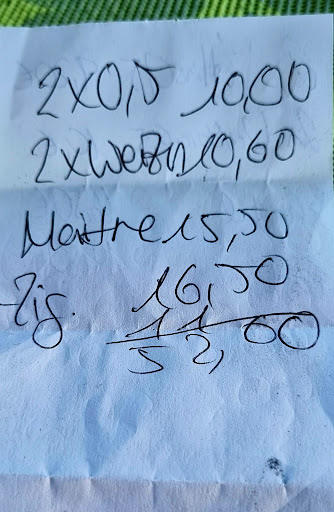 2x0,5 10,00
2xWeizn 10,60
15,50
Zig. 16,50
11
52,60